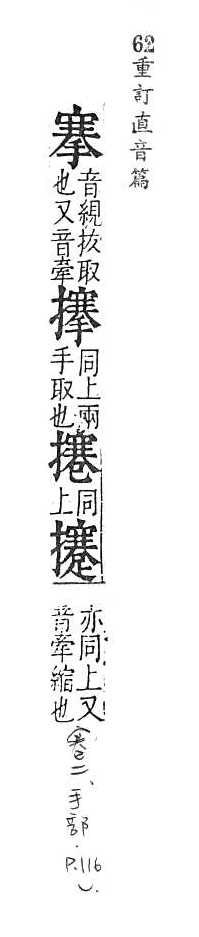 62重訂直音篇
搴
音拔取
也又音牽
同上兩
手取也
同
上
攓
亦同上又
音牽縮也
(卷二、手部.P.116).